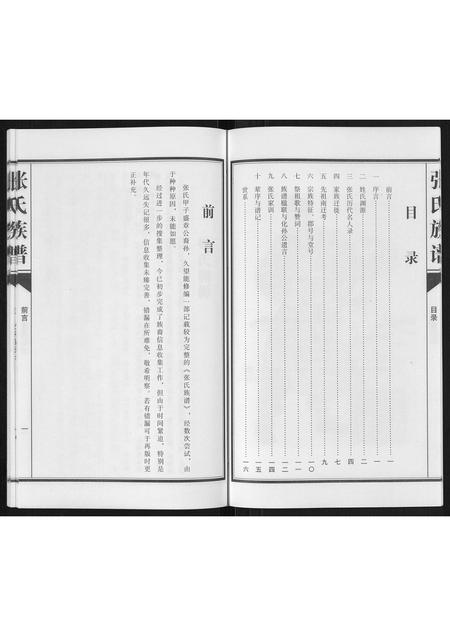 张氏族谱
目录
目录
前言……一
一 序言……一
二 姓氏渊源……二
三 张氏历代名人录……四
四 家族迁徙……七
五 先祖南迁考……九
六 宗族特征、郡号与堂号……一〇
七 祭祖歌与赞词……一一
八 族谱楹联与化孙公遗言……一二
九 张氏家训……一四
十 辈序与谱记……一五
世系……一六
前言
张氏甲子盛章公裔孙，久望能修编一部记载较为完整的《张氏族谱》，经数次尝试，由
于种种原因，未能如愿。
经过进一步的搜集整理，今已初步完成了族裔信息收集工作，但由于时间紧迫，特别是
年代久远失记很多，信息收集未臻完善，错漏在所难免，敬希明察。若有错漏可于再版时更
正补充。
张氏族谱
前言
一